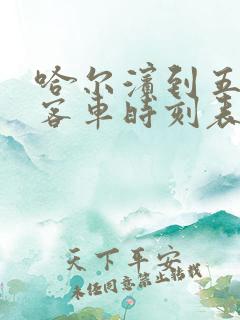 哈尔滨到五
客车时刻表
天下平安
未经同意禁止转载